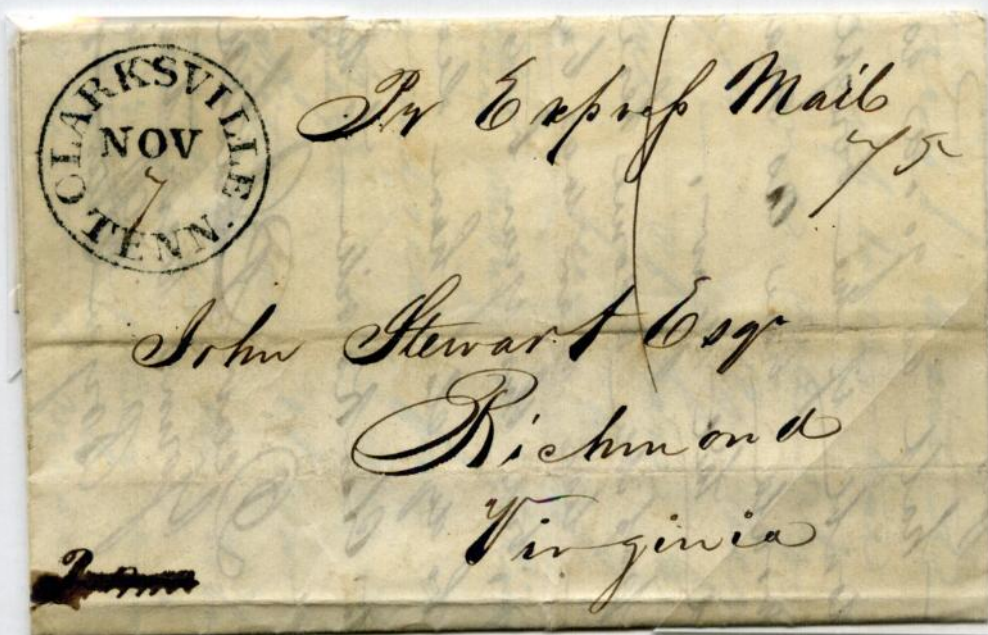 CLARKSVILLE
NOV
7
TENN.
Pr Express Mail
75
John Stewart Esqr
Richmond
Virginia